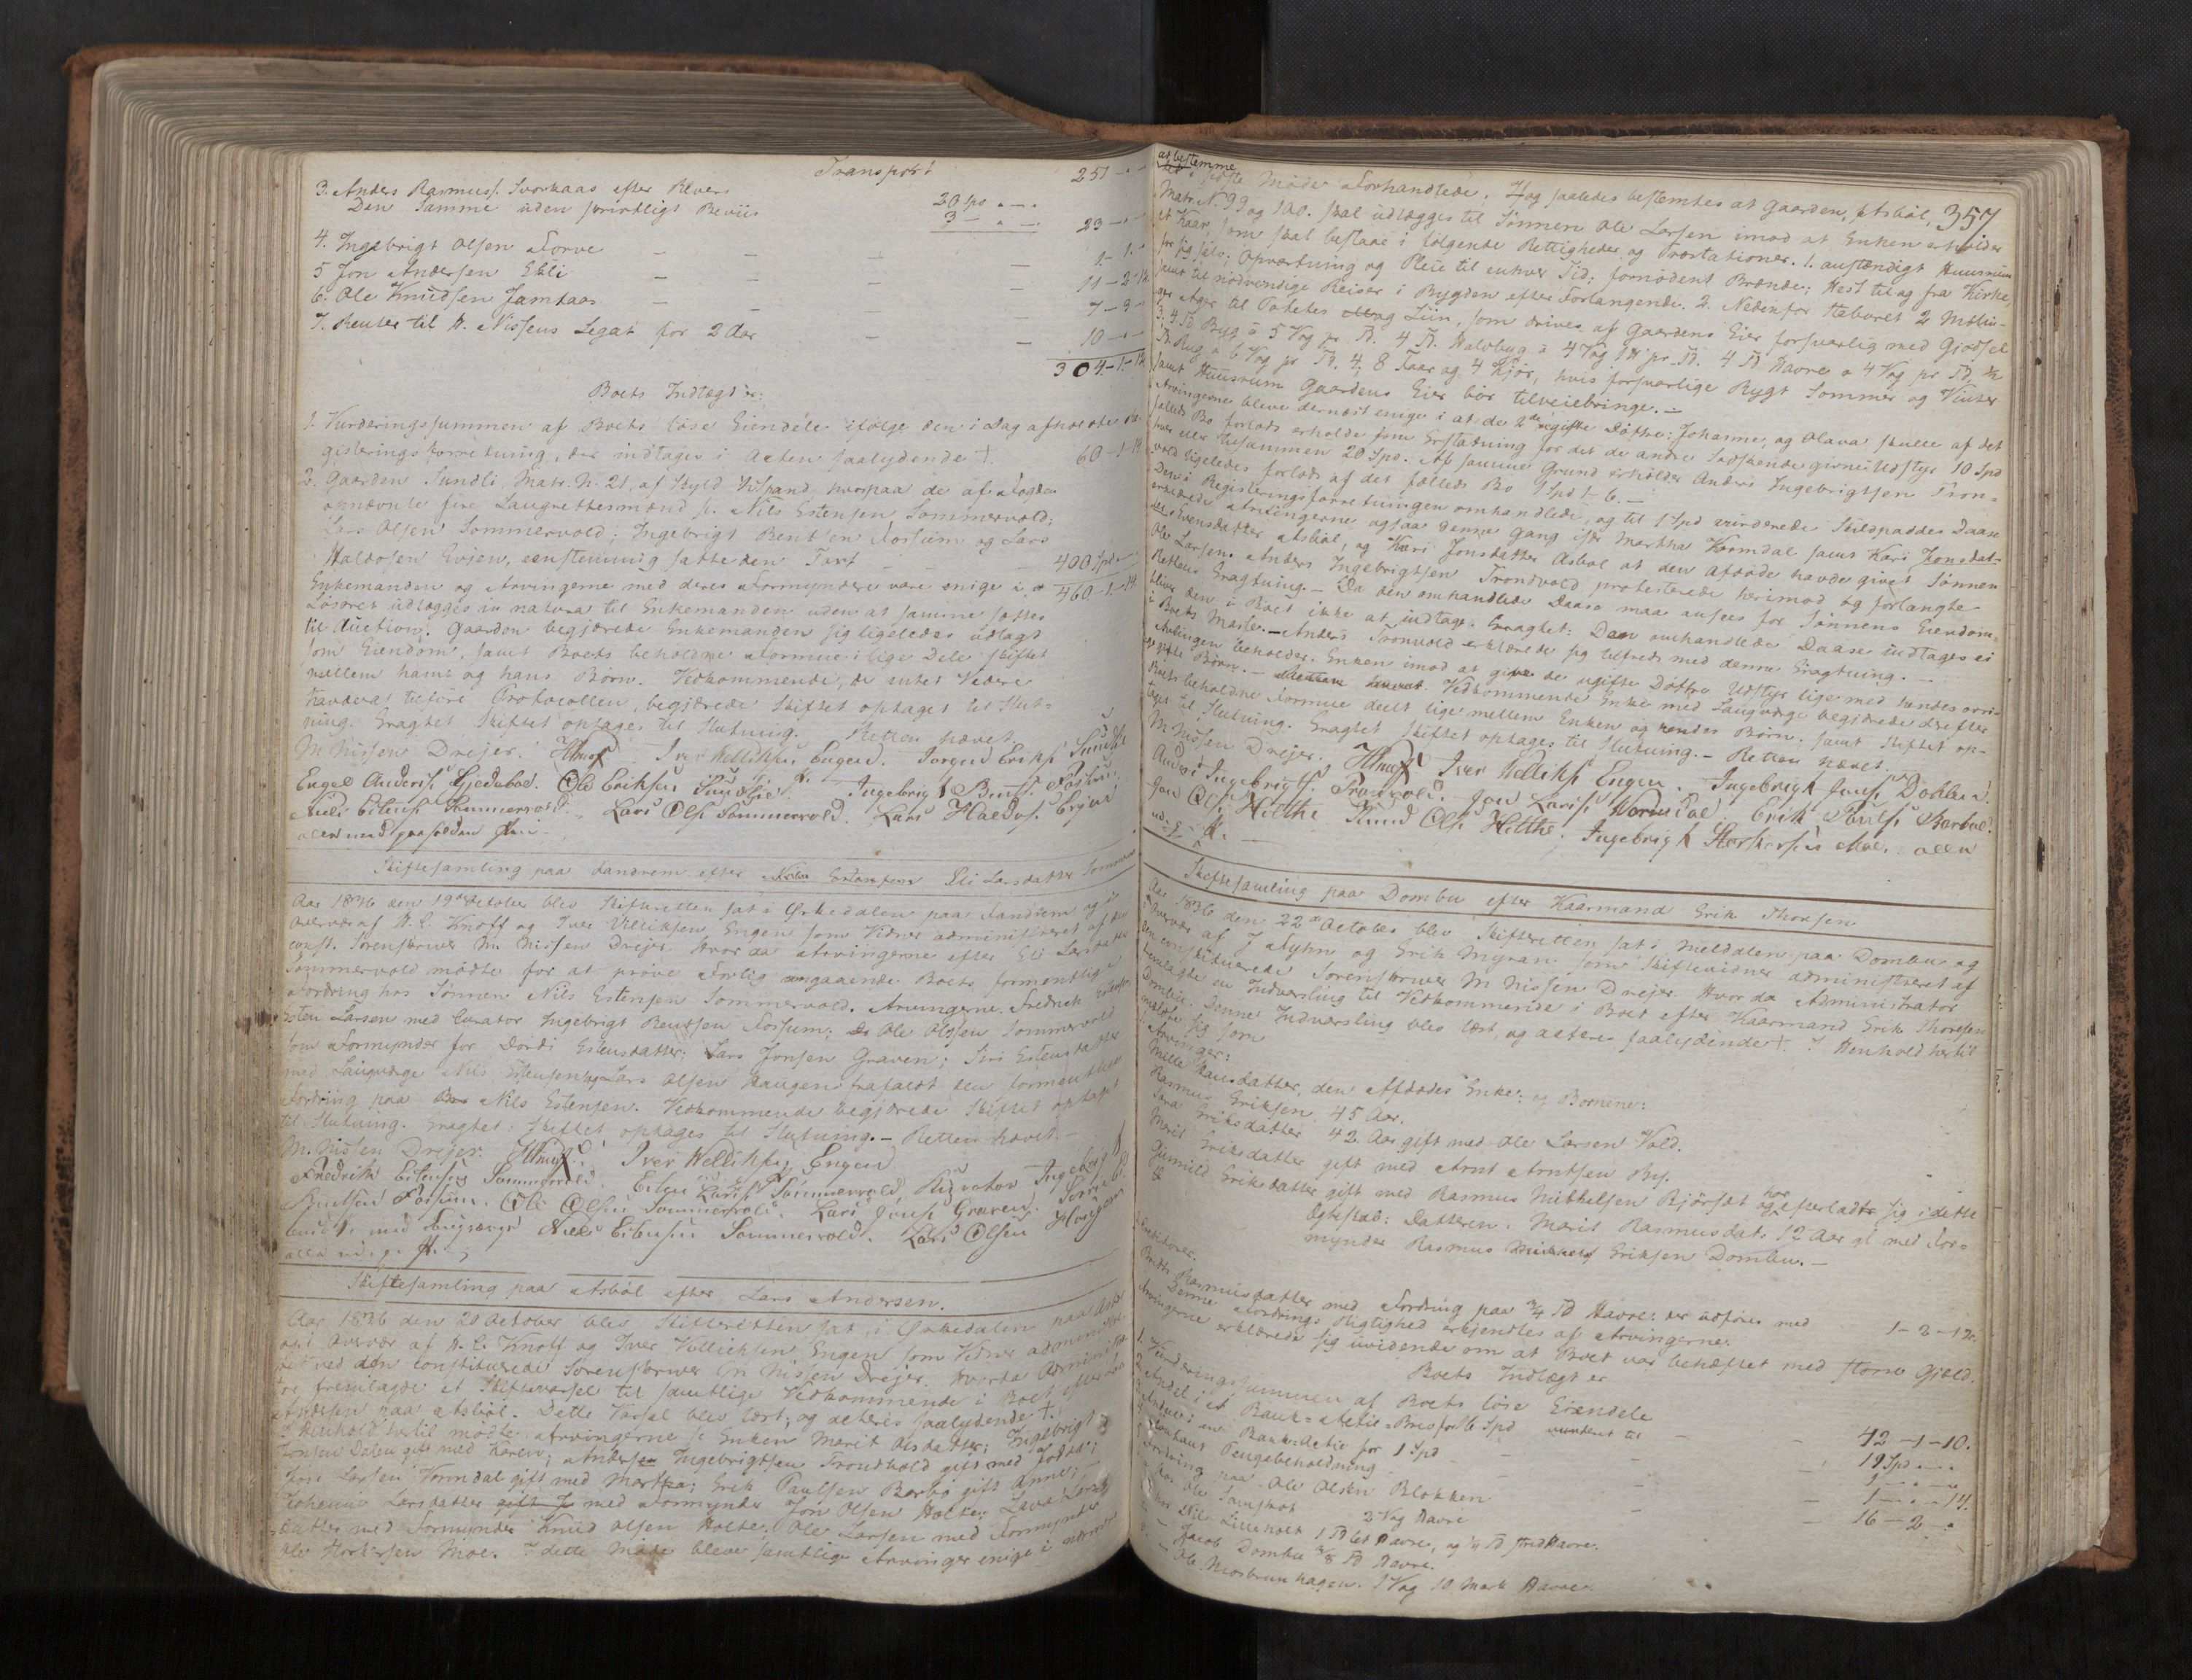 Transport 251 - " -
3. Anders Rasmuss. Svorkaas efter Bever 20 Spd " - "
Den Samme uden skriftligt Beviis 3 - " - 23 - " -
4. Ingebrigt Olsen Forve - - - 1 - 1 -
5 Jon Andersen Ekli - - - 11 - 2 - 14
6. Ole Knudsen Jamtaas - - - 7 - 3 -
7. Renter til A. Nissens Legat for 2 Aar - - 10 - " -
304 - 1 - 14
Boets Indtægter:
1. Vurderingssummen af Boets løse Eiendele ifølge den i Dag afholdte Re-
gisteringsforretning, der indtages i Acten saalydende †. 60 - 1 - 14
2. Gaarden Sundli Matr. Nr. 21, af Skyld Spand, hvorpaa de af Fogden
opnævnte fire Laugrettesmænd s. Nils Estensen Sommervold;
Lars Olsen Sommervold; Ingebrigt Bentsen Fossum og Lars
Haldosen Evjen, eenstemmig satte den Taxt - - 400 Spd -
460 - 1 - 14
Enkemanden og Arvingerne med deres Formyndere vare enige i, at
Løsøret udlægges in natura til Enkemanden uden at samme sættes
til Auction. Gaarden begjærede Enkemanden sig ligeledes udlagt
som Eiendom, samt Boets beholdne Formue i lige Dele skiftet
mellem ham og hans Børn. Vedkommende, der intet videre
havde at tilføre Protocollen, begjærede Skiftet optaget til Slut-
ning. Eragtet Skiftet optages til Slutning. Retten hævet.
M Nissen Drejer. Iver Wellikss. Engen. Jørgen Erikss. Sundli
Engel Anders. Gjedeboe. Ole Eriksen Sundlie. Ingebrigt Bents. Fossum.
Nils Estens. Sommervold. Lars Ols. Sommervold. Lars Haldos. Evjen
alle med paaholden Pen -
Skiftesamling paa Landrem efter Eli Larsdatter Sommervold
Aar 1836 den 19de October blev Skifteretten sat i Ørkedalen paa Landrem og i
Overvær af A. C. Knoff og Iver Villiksen Engen som Vidner administreret af den
const. Sorenskriver M Nissen Drejer. Hvor da Arvingerne efter Eli Larsdatter
Sommervold mødte for at prøve Forlig angaaende Boets formentlige
Fordring hos Sønnen Nils Estensen Sommervold. Arvingerne Fredrik Estensen
Esten Larsen med Curator Ingebrigt Bentsen Fossum; Ole Olssen Sommervold
som Formynder for Dordi Estensdatter; Lars Jonsen Graven; Siri Estensdatter
med Laugværge Nils Estensen og Lars Olsen Haugen frafaldt den formentlige
Fordring paa Nils Estensen. Vedkommende begjærede Skiftet optaget
til Slutning. Eragtet: Skiftet optages til Slutning. - Retten hævet. -
M. Nissen Drejer. Iver Wellikss. Engen
Fredrik Estensen Sommervold. Esten Larss. Sommervold, Curator Ingebrigt
Bentsen Fossum. Ole Olsen Sommervold. Lars Jons. Graven. Siri Estens-
med Laugværge Niels Estensen Sommervold. Lars Olsen Haugen
alle m. p. P.
Skiftesamling paa Asbøl efter Lars Andersen.
Aar 1836 den 20 October blev Skifteretten sat i Ørkedalen paa Asbøl
og i Overvær af A. C. Knoff og Iver Vellichsen Engen som Vidner administre-
ret ved den constituerede Sorenskriver M Nissen Drejer. Hvor da Administra-
tor fremlagde et Skiftevarsel til samtlige Vedkommende i Boet efter Lars
Andersen paa Asbøl. Dette Varsel blev læst, og acteres saalydende †.
I Henhold hertil mødte Arvingerne s. Enken Marit Olsdatter; Ingebrigt
Jonsen Dalen gift med Karen; Anders Ingebrigtsen Trondvold gift med
Jon Larsen Vormdal gift med Martha; Erik Paulsen Barbo gift Anne; -
Johanna Larsdatter med Formynder Jon Olsen Holte; Lava Lars-
datter med Formynder Knud Olsen Holte; Ole Larsen med Formynder
Ole Størkersen Moe. I dette Møde bleve samtlige Arvinger enige i
357
at bestemme
det i sidste Møde Forhandlede. I Dag saaledes bestemtes at Gaarden, Asbøl,
Matr. Nr. 99 og 100. skal udlægges til Sønnen Ole Larsen imod at Enken erholder
et Kaar, som skal bestaae i følgende Rettigheder og Præstationer. 1. anstændigt Huusrum
for sig selv; Opvartning og Pleie til enhver Tid; fornødent Brænde; Hest til og fra Kirke
samt til nødvendige Reiser i Bygden efter Forlangende. 2. Nedenfor Staburet 2 Mælin-
ger Ager til Potetes og Liin, som drives af Gaardens Eier forsvarlig med Gjødsel
3. 4 Td Byg à 5 Vog pr Td. 4 Td. Halvbyg à 4 Vog 1 pr Td. 4 Td Havre à 4 Vog pr Td, ½
Td. Rug à 6 Vog pr Td. 4, 8 Faar og 4 Kjør, hvis forsvarlige Rygt Sommer og Vinter
samt Huusrum Gaardens Eier bør tilveiebringe. -
Arvingerne bleve dernæst enige i at de 2de ugifte Døttre: Johanna, og Olava skulle af det
fælleds Bo forlods erholde som Erstatning for det de andre Sødskende givne Udstyr 10 Spd
hver eller tilsammen 20 Spd. Af samme Grund erholder Anders Ingebrigtsen Tron-
vold ligeledes forlods af det fælleds Bo 1 Spd 1-6. -
Den i Registeringsforretningen omhandlede, og til 1 Spd vurderede Skildpaddes Daase
erklærede Arvingerne ogsaa denne Gang især Martha Vormdal samt Kari Jonsdat-
Evensdatter Asbøl, og Kari Jonsdatter Asbøl at den Afdøde havde givet Sønnen
Ole Larsen. Anders Ingebrigtsen Trondvold protesterede herimod og forlangte
Rettens Eragtning. - Da den omhandlede Daase maa ansees for Sønnens Eiendom
bliver den i Boet ikke at indtage. Eragtet: Den omhandlede Daase indtages ei
i Boets Masse. - Anders Tronvold erklærede sig tilfreds med denne Eragtning. -
Avlingen beholder Enken imod at give de ugifte Døttre Udstyr lige med hendes øvri-
ge gifte Børn. - Vedkommende Enke med Laugværge begjærede derefter
Boets beholdne Formue deelt lige mellem Enken og hendes Børn, samt Skiftet op-
taget til Slutning. Eragtet Skiftet optages til Slutning. - Retten hævet.
M Nissen Drejer. Iver Wellikss. Engen. Ingebrigt Jons. Dahlen.
Anders Ingebrigts. Tronvold. Jon Larss. Vormdal. Erik Pouls. Barboe.
Jon Ols. Holthe Knud Ols. Holthe. Ingebrigt Størkersen Moe. alle
m. p. P. -
Skiftesamling paa Dombu efter Kaarmand Erik Thorsen
Aar 1836 den 22de October blev Skifteretten sat i Meldalen paa Dombu og
Overvær af J Flyhn og Erik Myran som Skiftevidner administreret af
den constituerede Sorenskriver M Nissen Drejer. Hvor da Administrator
fremlagde en Indvarsling til Vedkommende i Boet efter Kaarmand Erik Thoresen
Dombu. Denne Indvarsling blev læst, og acteres saalydende †. I Henhold hertil
meldte sig som
Arvinger:
Mille Hansdatter, den Afdødes Enke: og Børnene:
Rasmus Eriksen 45 Aar.
Sara Eriksdatter 42 Aar gift med Ole Larsen Vold.
Marit Eriksdatter gift med Arnt Arntsen By.
Gunnild Eriksdatter gift med Rasmus Mikkelsen Bjørset og har efterladt sig i dette
Ægteskab: Datteren. Marit Rasmusdat. 12 Aar gl med For-
mynder Rasmus Eriksen Dombu. -
Creditorer,
Berith Rasmusdatter med Fordring paa ¾ Td Havre: der udføres med 1-2-12
Denne Fordrings Rigtighed erkjendtes af Arvingerne.
Arvingerne erklærede sig uvidende om at Boet var behæftet med større Gjæld.
Boets Indtægter
1. Vurderingssummen af Boets løse Eiendele - - 42-1-10.
2. Andel i et Bank-Actie-Brev for 16 Spd vurderet til - 19 Spd " - "
3. Andel i en Bank-Actie for 1 Spd - - - 1 - " - "
4. Contant Pengebeholdning - - - 1 - " - 14.
5. Fordring paa Ole Olsen Blokken - - 16-2-"
- hos Ole Jamskot 2 Vog Havre
- hos Nils Lilleholt 1 Td let Havre, og ¼ Td Havre.
- Jacob Dombu ⅜ Td Havre.
- Ole Mosbrunhagen. 1 Vog 10 Mark Havre.